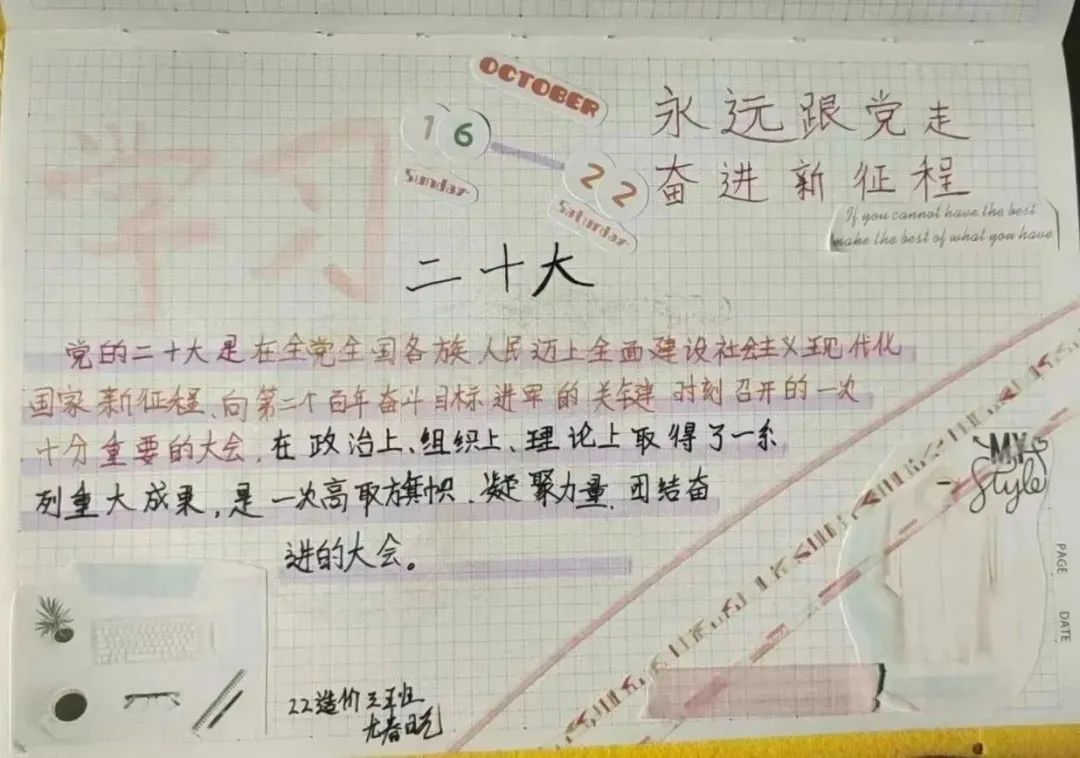 学习
OCTOBER
16
Sunday
22
Saturday
永远跟党走
奋进新征程
If you cannot have the best
make the best of what you have
二十大
党的二十大是在全党全国各族人民迈上全面建设社会主义现代化
国家新征程、向第二个百年奋斗目标进军的关键时刻召开的一次
十分重要的大会,在政治上、组织上、理论上取得了一系
列重大成果,是一次高取旗帜、凝聚力量、团结奋
进的大会。
MY
Style
PAGE
DATE
22造价三班
尤春